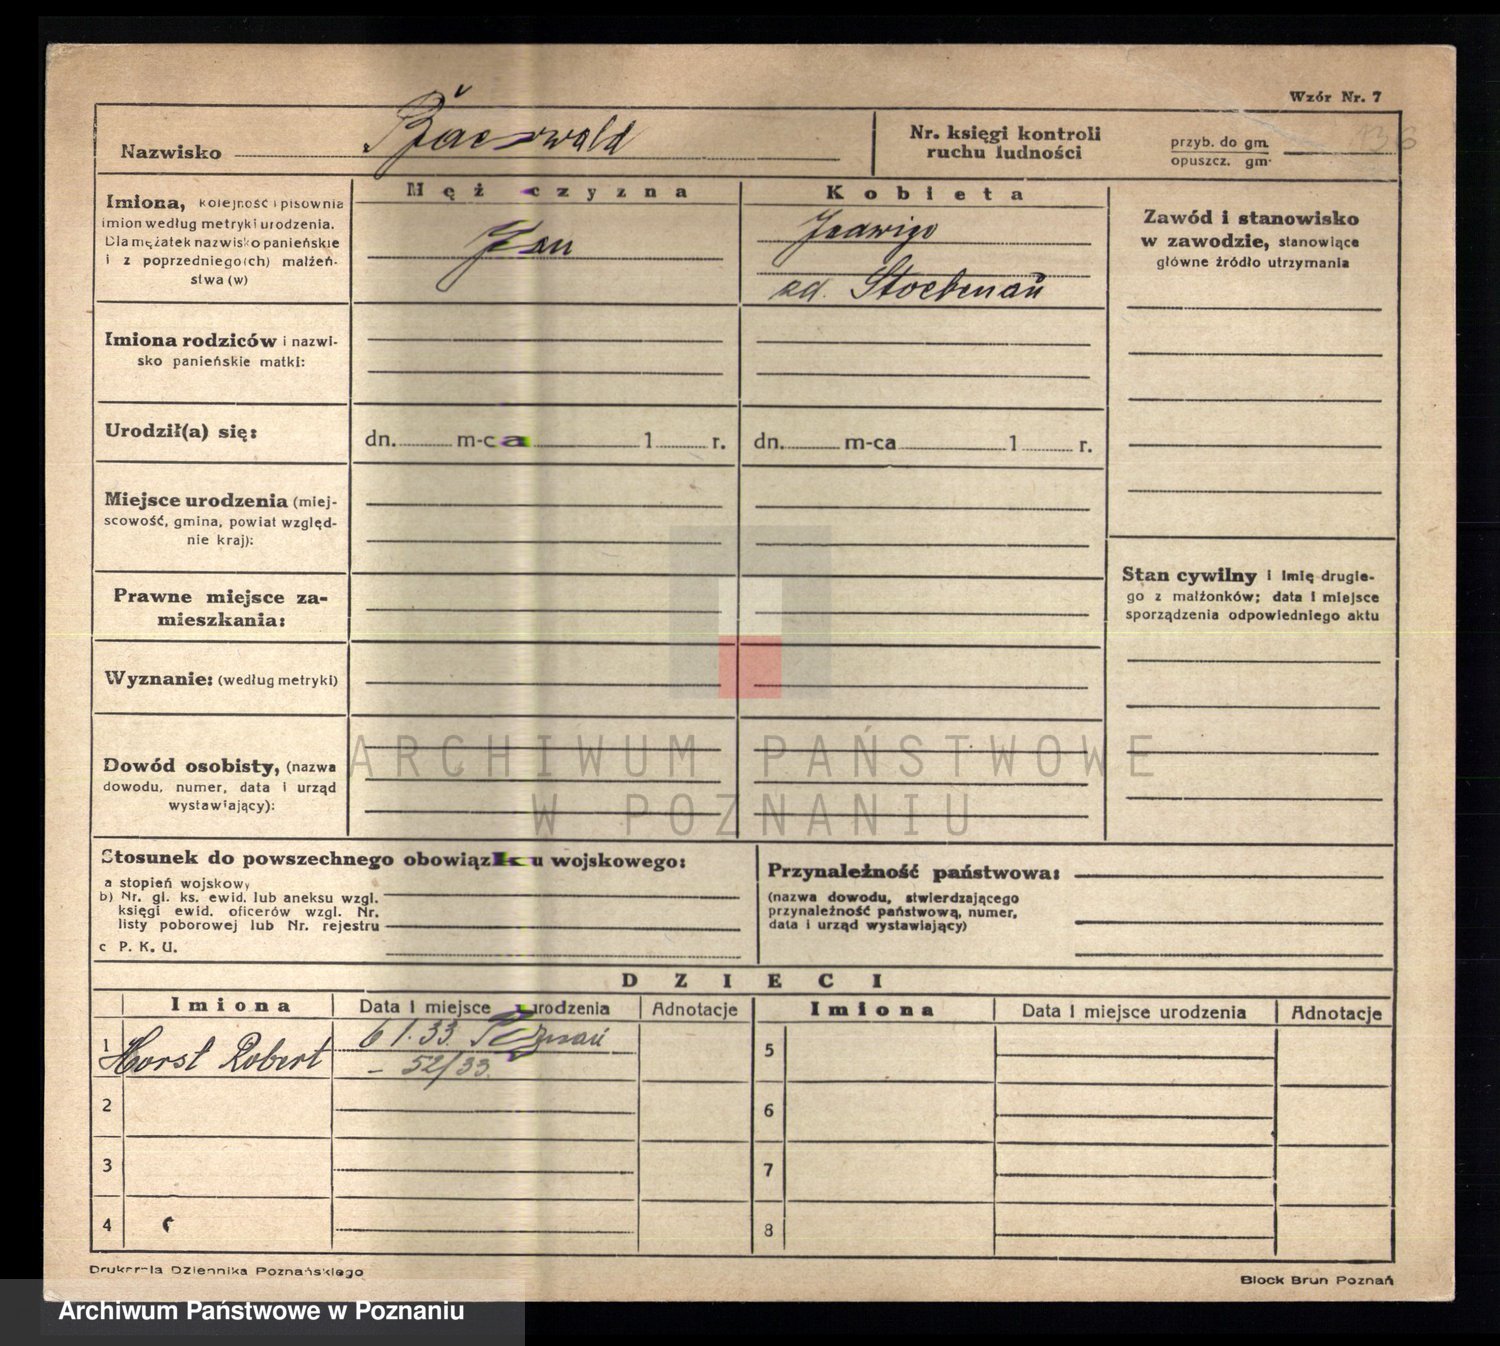 Wzór Nr. 7
Nazwisko Baerwald
Nr. księgi kontroli
ruchu ludności
przyb. do gm.
opuszcz. gm.
136
Mężczyzna
Kobieta
Imiona, kolejność i pisownia
imion według metryki urodzenia.
Dla mężatek nazwisko panieńskie
i z poprzedniego(ch) małżeń-
stwa (w)
Jan
Jadwiga
zd. Stoebenau
Zawód i stanowisko
w zawodzie, stanowiące
główne źródło utrzymania
Imiona rodziców i nazwi-
sko panieńskie matki:
Urodził(a) się:
dn. m-ca 1 r.
dn. m-ca 1 r.
Miejsce urodzenia (miej-
scowość, gmina, powiat względ-
nie kraj):
Stan cywilny i imię drugie-
go z małżonków; data i miejsce
sporządzenia odpowiedniego aktu
Prawne miejsce za-
mieszkania:
Wyznanie: (według metryki)
Dowód osobisty, (nazwa
dowodu, numer, data i urząd
wystawiający):
ARCHIWUM PAŃSTWOWE
W POZNANIU
Stosunek do powszechnego obowiązku wojskowego:
a stopień wojskowy
b) Nr. gl. ks. ewid. lub aneksu wzgl.
księgi ewid. oficerów wzgl. Nr.
listy poborowej lub Nr. rejestru
c P. K. U.
Przynależność państwowa:
(nazwa dowodu, stwierdzającego
przynależność państwową, numer,
data i urząd wystawiający)
DZIECI
Imiona Data i miejsce urodzenia Adnotacje Imiona Data i miejsce urodzenia Adnotacje
1 Horst Robert 6 1. 33. Poznań
– 52/33.
5
2
6
3
7
4
8
Drukarnia Dziennika Poznańskiego
Block Brun Poznań
Archiwum Państwowe w Poznaniu